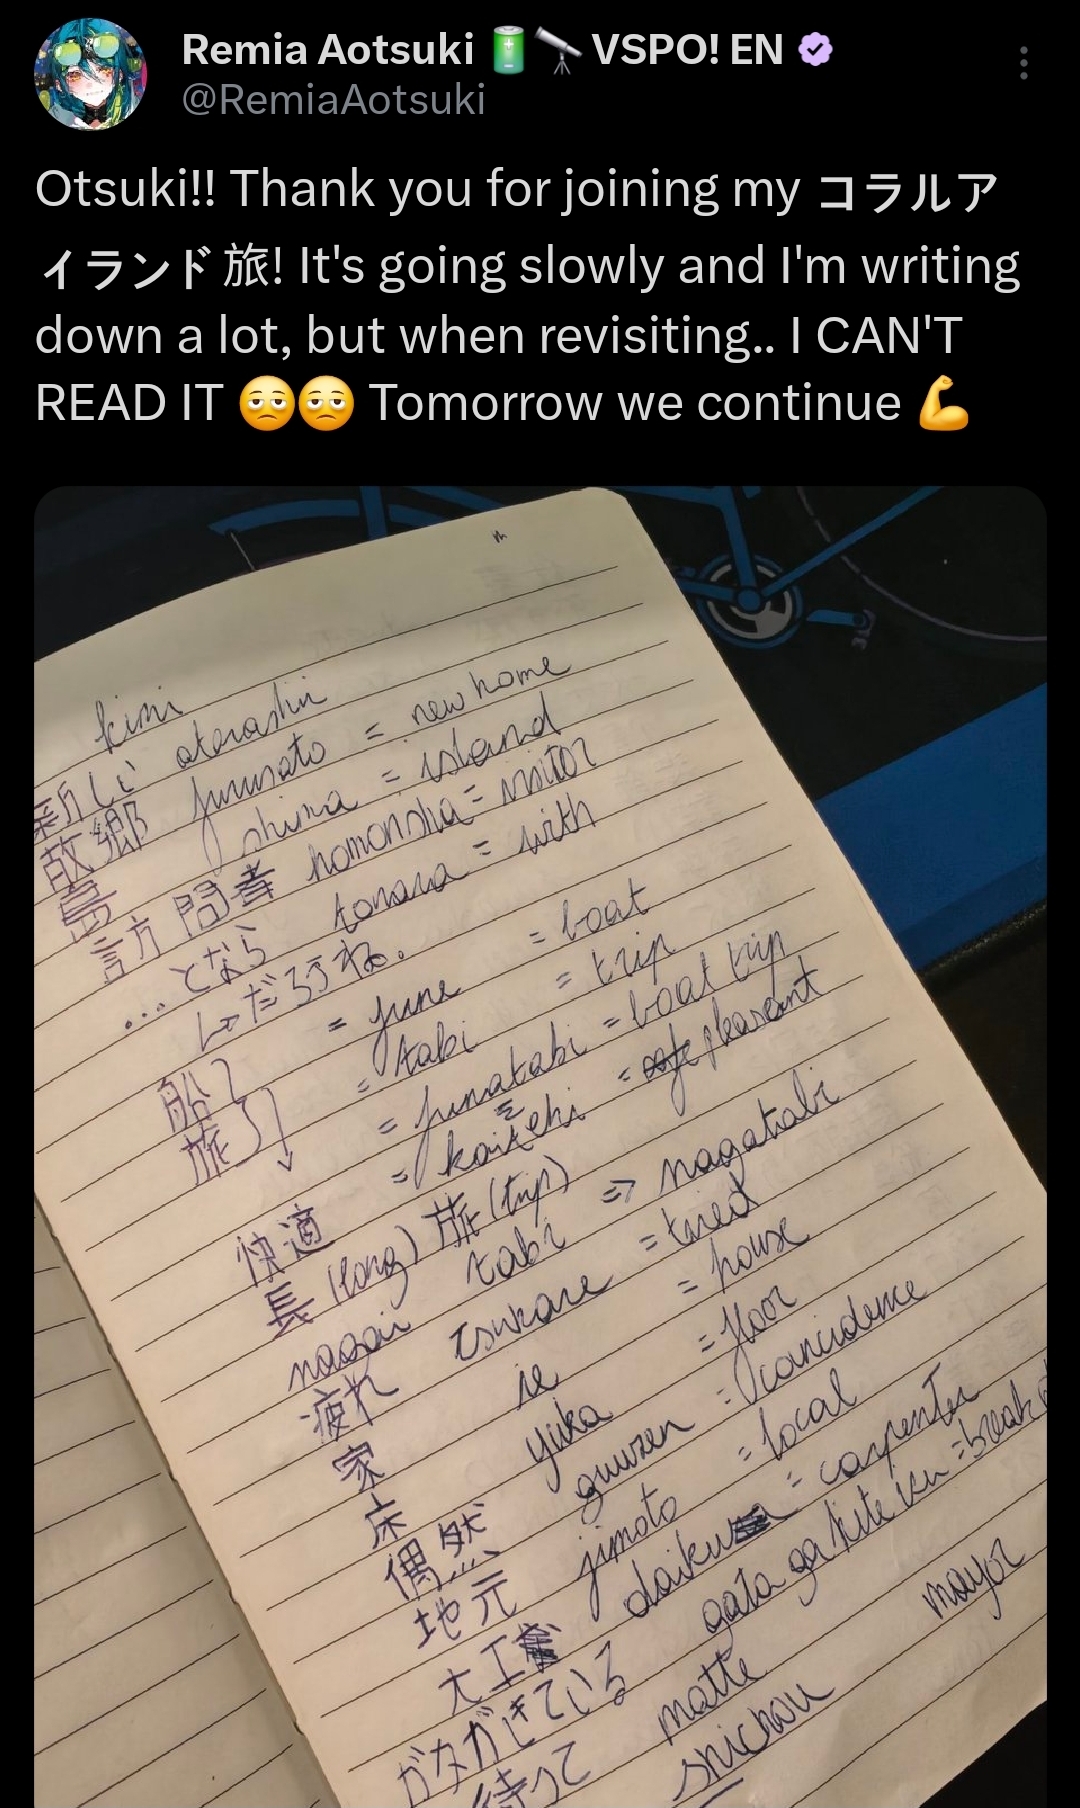 Remia Aotsuki 🔋🔭 VSPO! EN
@RemiaAotsuki
Otsuki!! Thank you for joining my コラルア
イランド旅! It's going slowly and I'm writing
down a lot, but when revisiting.. I CAN'T
READ IT 😩😩 Tomorrow we continue 💪
kimi
新しい atarashii
故郷 furusato = new home
島 shima = island
訪問者 homonsha = visitor
...となら tonara = with
↳だろうね。
船 = fune = boat
旅 = tabi = trip
= funatabi = boat trip
快適 = kaiteki = pleasant
長 (long) 旅 (trip)
nagai tabi ⇒ nagatabi
疲れ tsukare = tired
家 ie = house
床 yuka = floor
偶然 guuzen = coincidence
地元 jimoto = local
大工 daiku = carpenter
ガタがきている gata ga kite iru = break
待って matte
shichou mayor